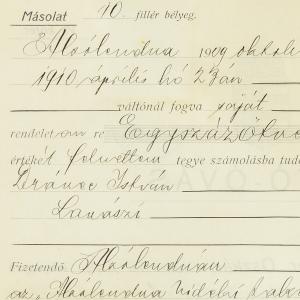 Másolat 10. fillér bélyeg.
Alsólendva 1909 októb
1910 április hó 23án
váltónál fogva saját
rendelet em re Egyszáz Ötve
értékét felvettem tegye számolásba tud
István
Fizetendő Alsólendván
az Alsólendva vidéki takar